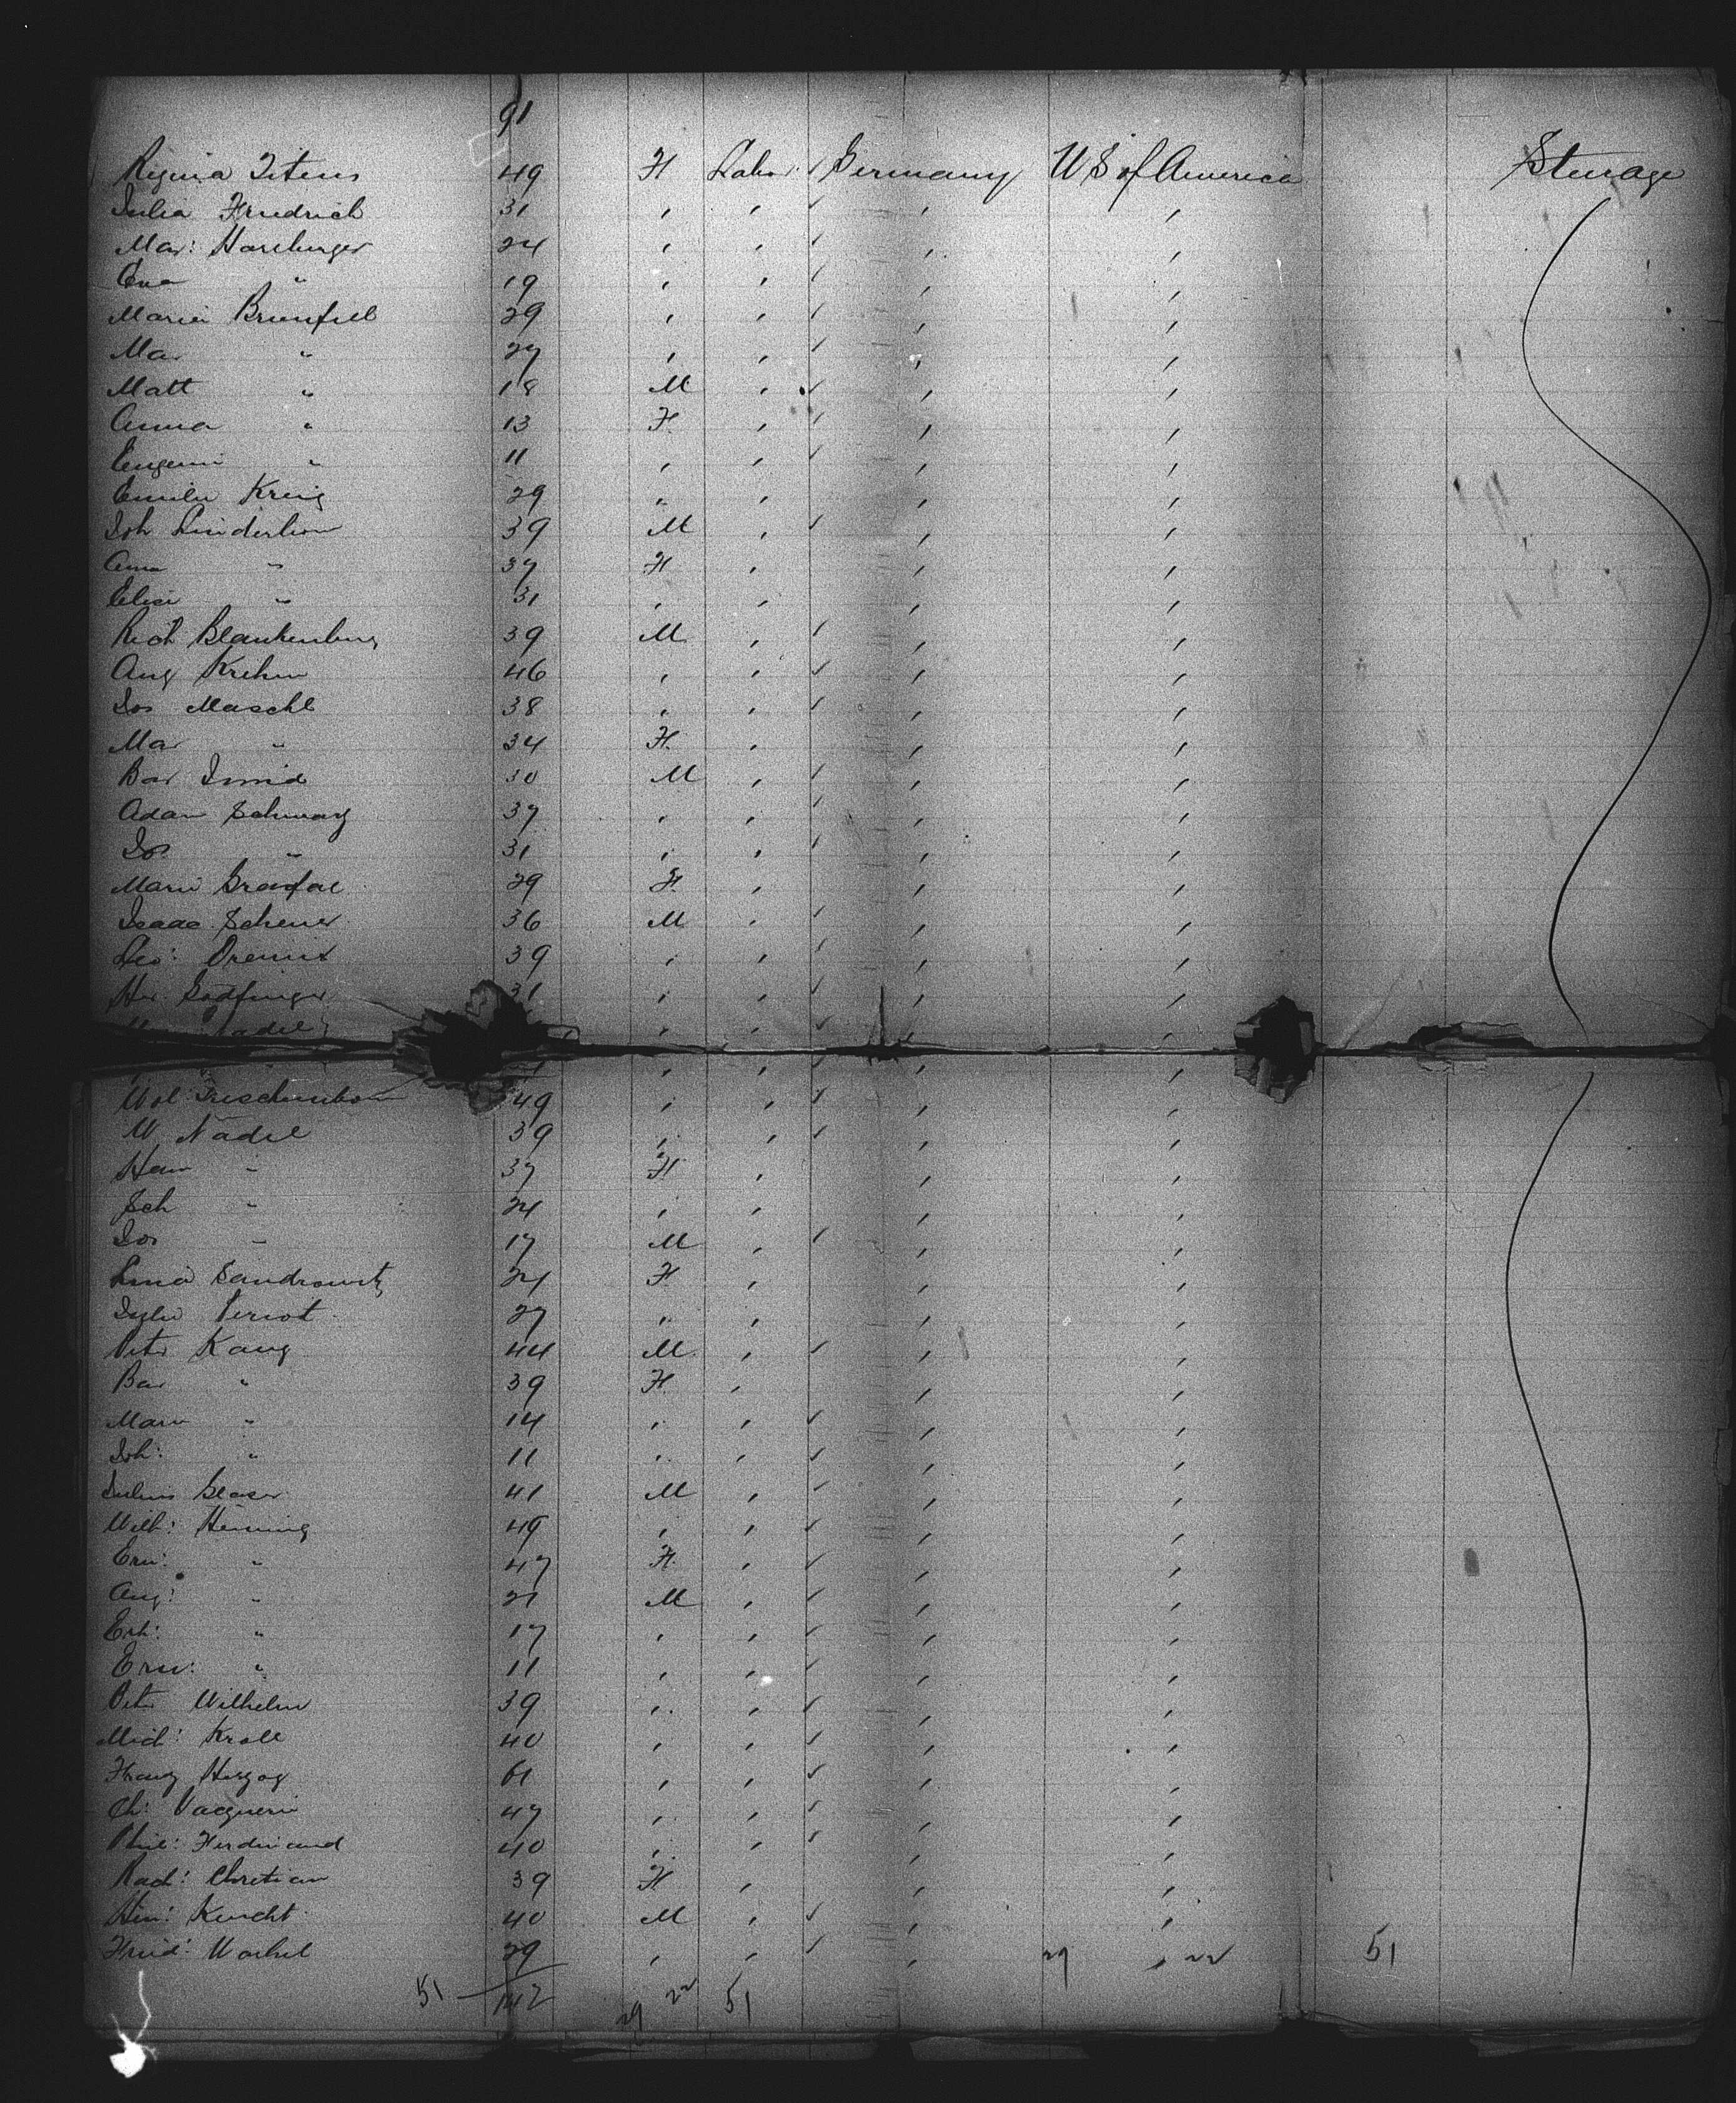 91
Regina Titens 49 F Labor Germany U S of America Steerage
Julia Friedrich 31 , , , ,
Mar: Harzburger 24 , , , ,
Eva " 19 , , , ,
Maria Brunfiel 29 , , , ,
Mar " 27 , , , ,
Matt " 18 M , , ,
Anna " 13 F , , ,
Eugeni " 11 , , , ,
Emilie Kreig 29 " , , ,
Joh Linderhom 39 M , , ,
Anna " 37 F , , ,
Elise " 31 , , , ,
Rich Blankenburg 39 M , , ,
Aug Krehm 46 , , , ,
Jos Maschl 38 , , , ,
Mar " 34 F , , ,
Bar 30 M , , ,
Adam Schwarz 37 , , , ,
Jos " 31 , , , ,
Marie 29 F , , ,
Isaac Scheuer 36 M , , ,
Leo: 39 , , , ,
Her. 31 , , , ,
, , , ,
, , , ,
Wol: 49 , , , ,
W Nadel 39 , , , ,
Han " 37 F , , ,
Sch " 24 , , , ,
Jos " 17 M , , ,
Lina Sandrowitz 24 F , , ,
27 " , , ,
Peter Kanz 44 M , , ,
Bar " 39 F , , ,
Marie " 14 , , , ,
Joh: " 11 , , , ,
Julius Glaser 41 M , , ,
Wilh: Henning 49 , , , ,
Ern: " 47 F , , ,
Aug: " 21 M , , ,
Erh: " 17 , , , ,
Ern: " 11 , , , ,
Peter Wilhelm 39 , , , ,
Mich: Kroll 40 , , , ,
Franz Herzog 61 , , , ,
Ch: Vacquerie 47 , , , ,
Phil: Ferdinand 40 , , , ,
Rach: Christian 39 F , , ,
Hen: Knecht 40 M , , ,
Fried: Workel 29 , , , 29 , 22 51
51 142 29 22 51